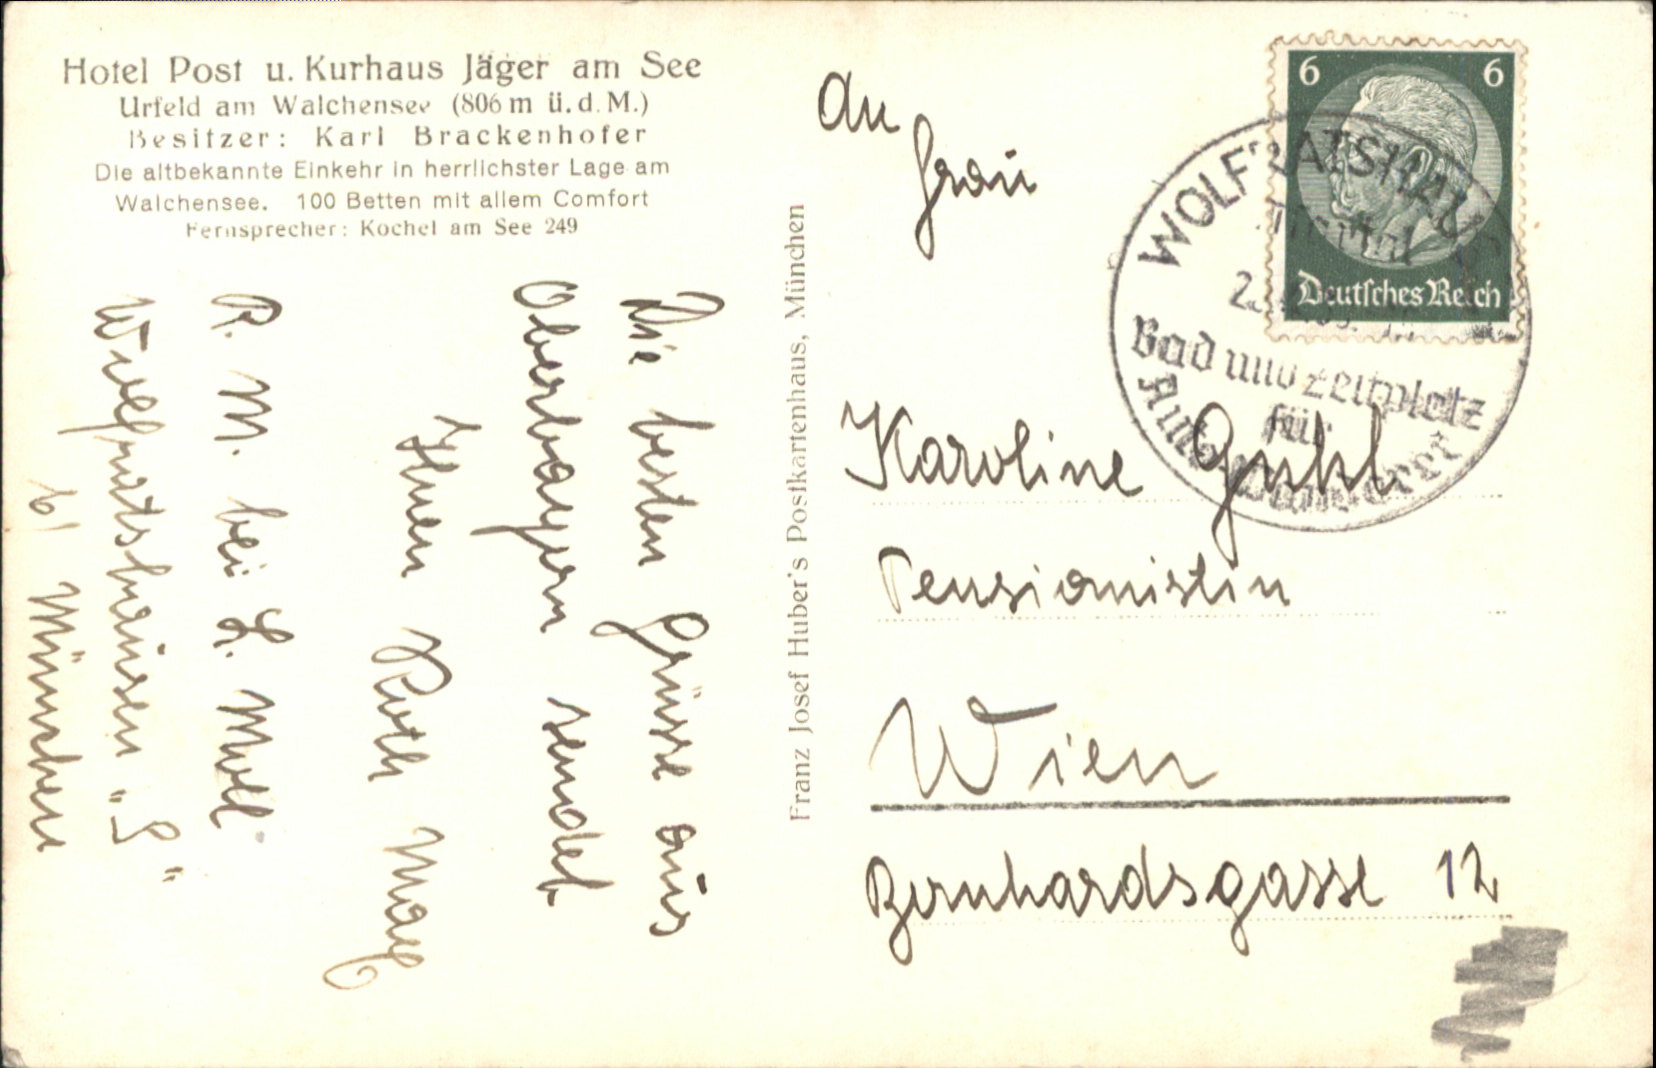 Hotel Post u. Kurhaus Jäger am See
Urfeld am Walchensee (806 m ü. d. M.)
Besitzer: Karl Brackenhofer
Die altbekannte Einkehr in herrlichster Lage am
Walchensee. 100 Betten mit allem Comfort
Fernsprecher: Kochel am See 249
Die besten Grüsse aus
Oberbayern sendet
Ihnen Ruth
R. M. bei L. Moll
Wolfratshausen
b/ München
Franz Josef Huber's Postkartenhaus, München
An
Frau
Karoline Guhl
Pensionistin
Wien
Bernhardsgasse 12
6 6
Deutsches Reich
WOLFRATSHAUS
Bad und Zeltplatz
für